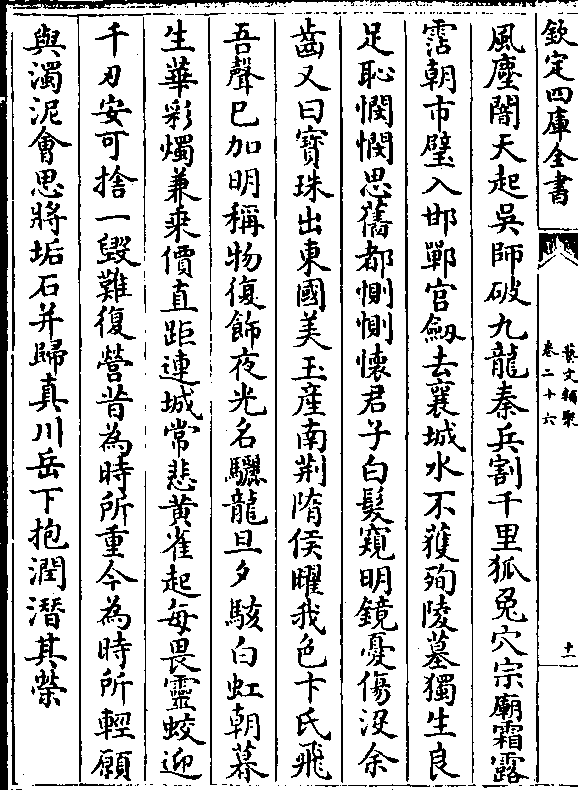 欽定四庫全書
藝文類聚
卷二十六
十一
風塵闇天起吳師破九龍秦兵割千里狐兔穴宗廟霜露
霑朝市璧入邯鄲宫劒去襄城水不獲殉陵墓獨生良
足恥憫憫思舊都惻惻懷君子白髮窺明鏡憂傷没余
齒又曰寳珠出東國美玉産南荆隋侯曜我色卞氏飛
吾聲已加明稱物復飾夜光名驪龍旦夕駭白虹朝暮
生華彩燭兼乘價直距連城常悲黄雀起每畏靈蛟迎
千刃安可捨一毁難復營昔為時所重今為時所輕願
與濁泥會思將垢石并歸真川岳下抱潤潛其榮